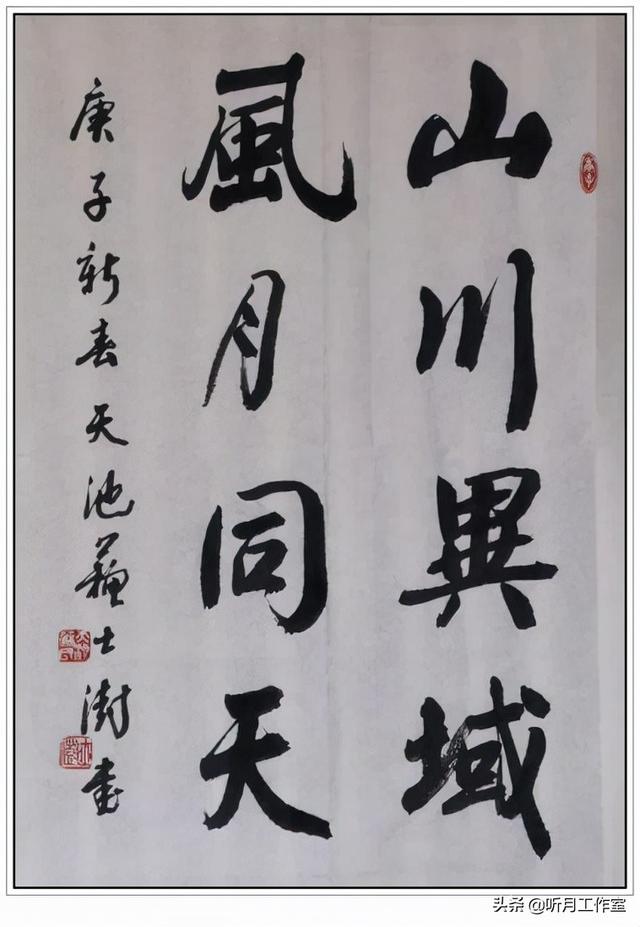 山川異域
風月同天
庚子新春天池蘇士澍書
头条@听月工作室